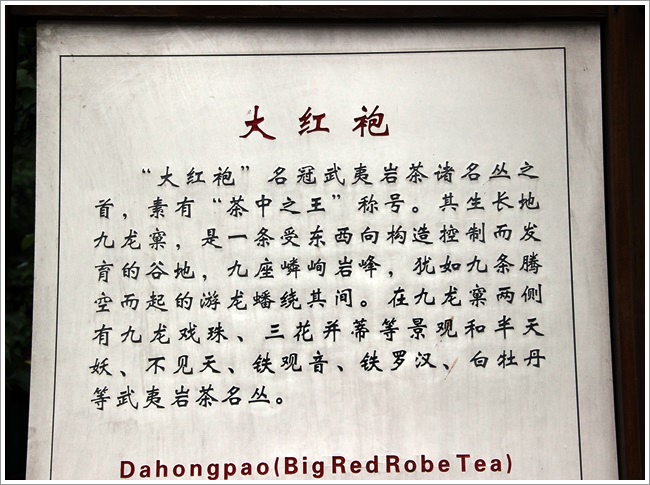 大红袍
“大红袍”名冠武夷岩茶诸名丛之
首，素有“茶中之王”称号。其生长地
九龙窠，是一条受东西向构造控制而发
育的谷地，九座嶙峋岩峰，犹如九条腾
空而起的游龙蟠绕其间。在九龙窠两侧
有九龙戏珠、三花并蒂等景观和半天
妖、不见天、铁观音、铁罗汉、白牡丹
等武夷岩茶名丛。
Dahongpao(Big Red Robe Tea)